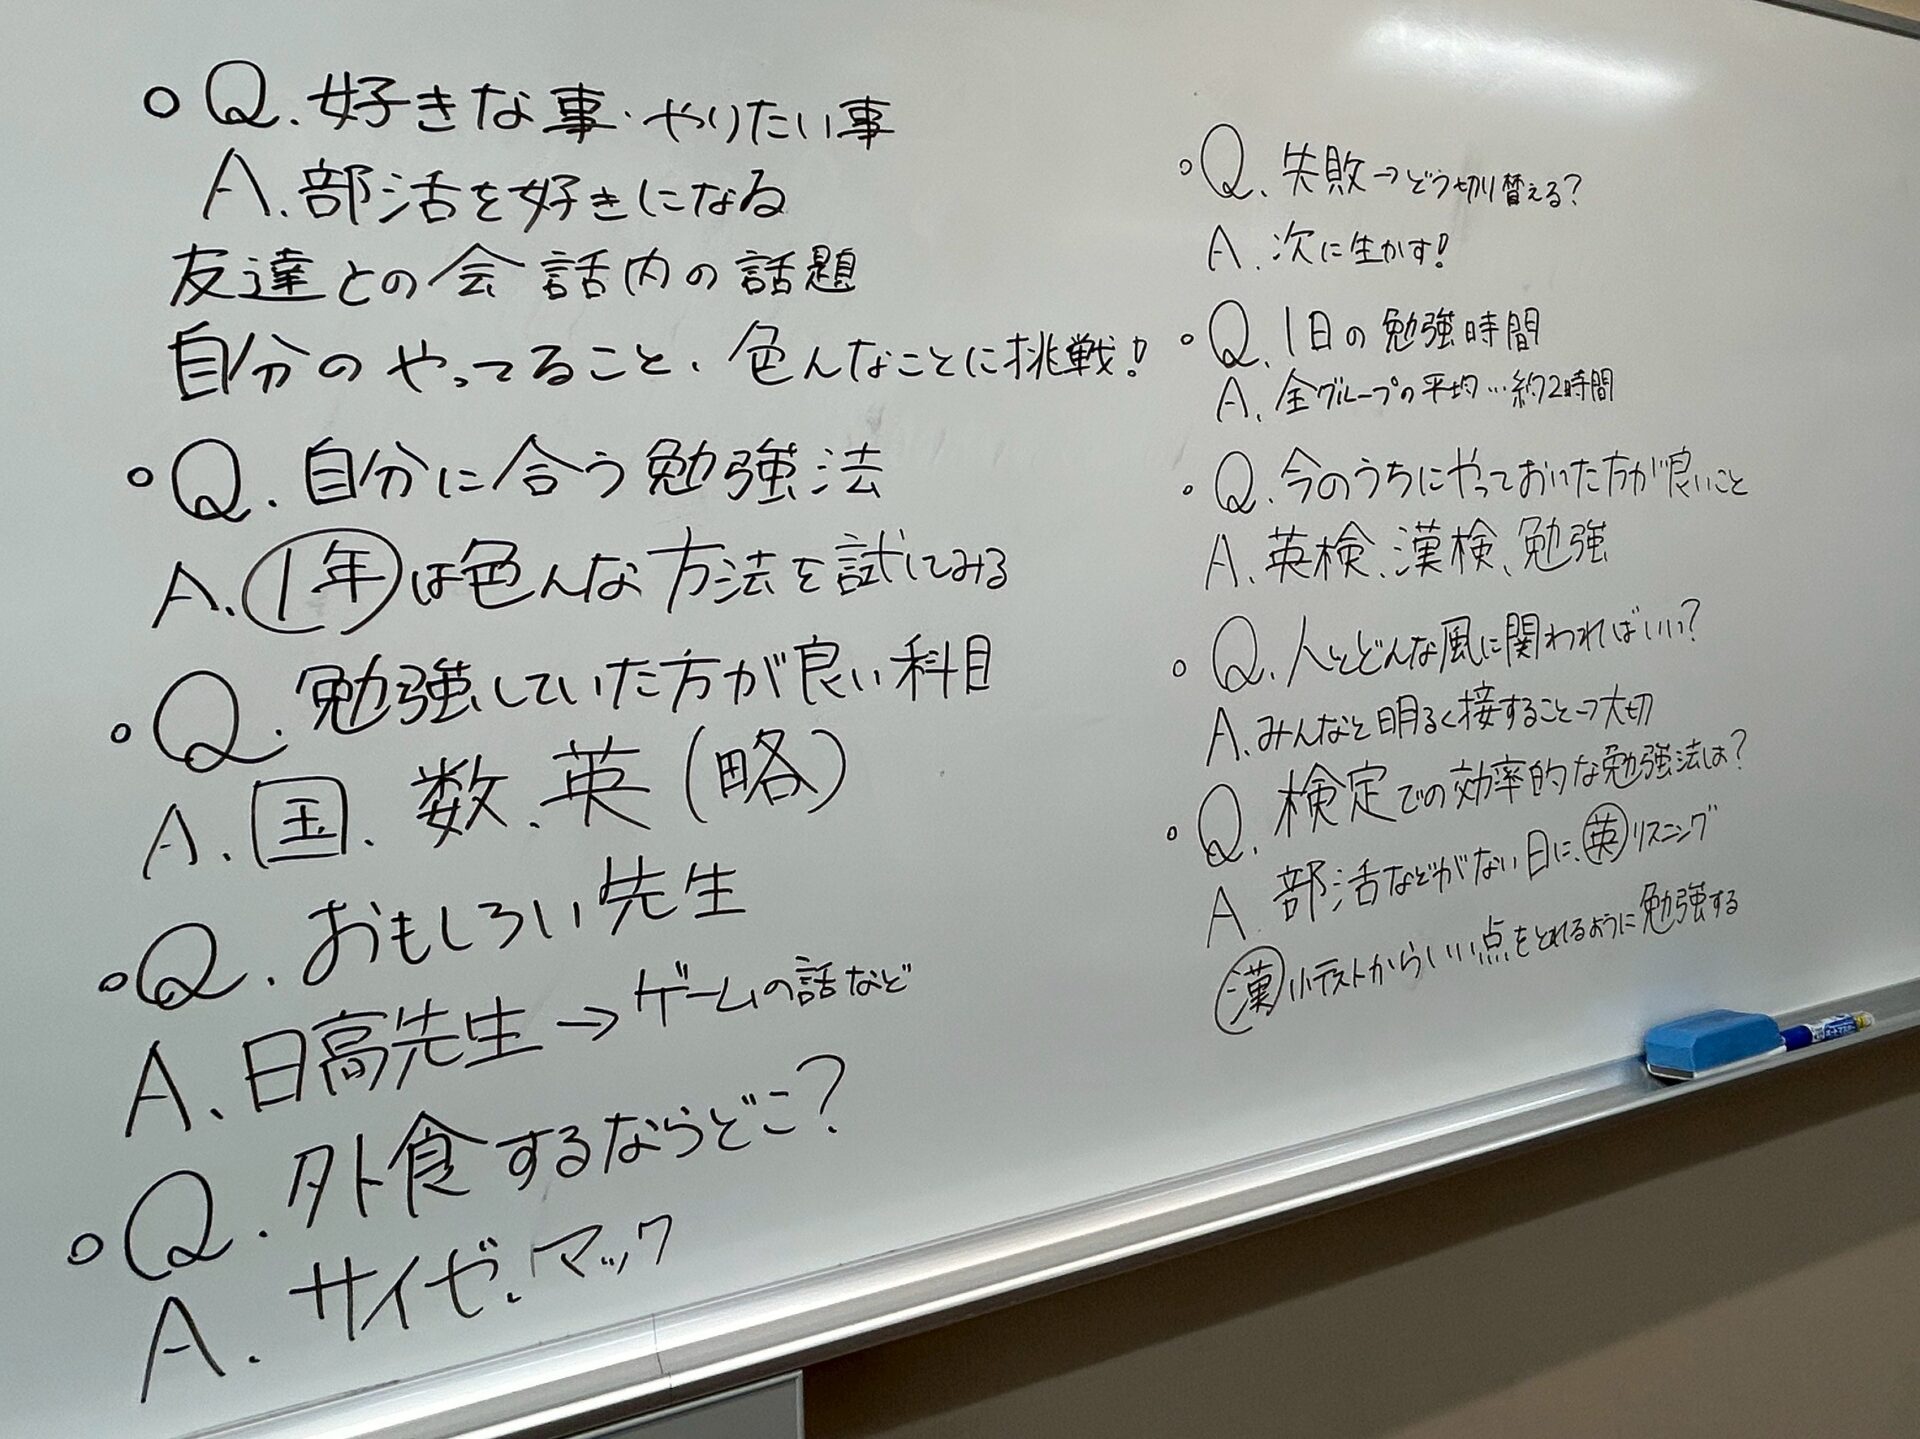 ○Q. 好きな事・やりたい事
A. 部活を好きになる
友達との会話内の話題
自分のやってること、色んなことに挑戦!
○Q. 自分に合う勉強法
A. 1年は色んな方法を試してみる
○Q. 勉強していた方が良い科目
A. 国、数、英(略)
○Q. おもしろい先生
A. 日高先生→ゲームの話など
○Q. 外食するならどこ?
A. サイゼ、マック
○Q. 失敗→どう切り替える?
A. 次に生かす!
○Q. 1日の勉強時間
A. 全グループの平均…約2時間
○Q. 今のうちにやっておいた方が良いこと
A. 英検、漢検、勉強
○Q. 人とどんな風に関わればいい?
A. みんなと明るく接すること→大切
○Q. 検定での効率的な勉強法は?
A 部活などがない日に、英リスニング
漢小テストからいい点をとれるように勉強する